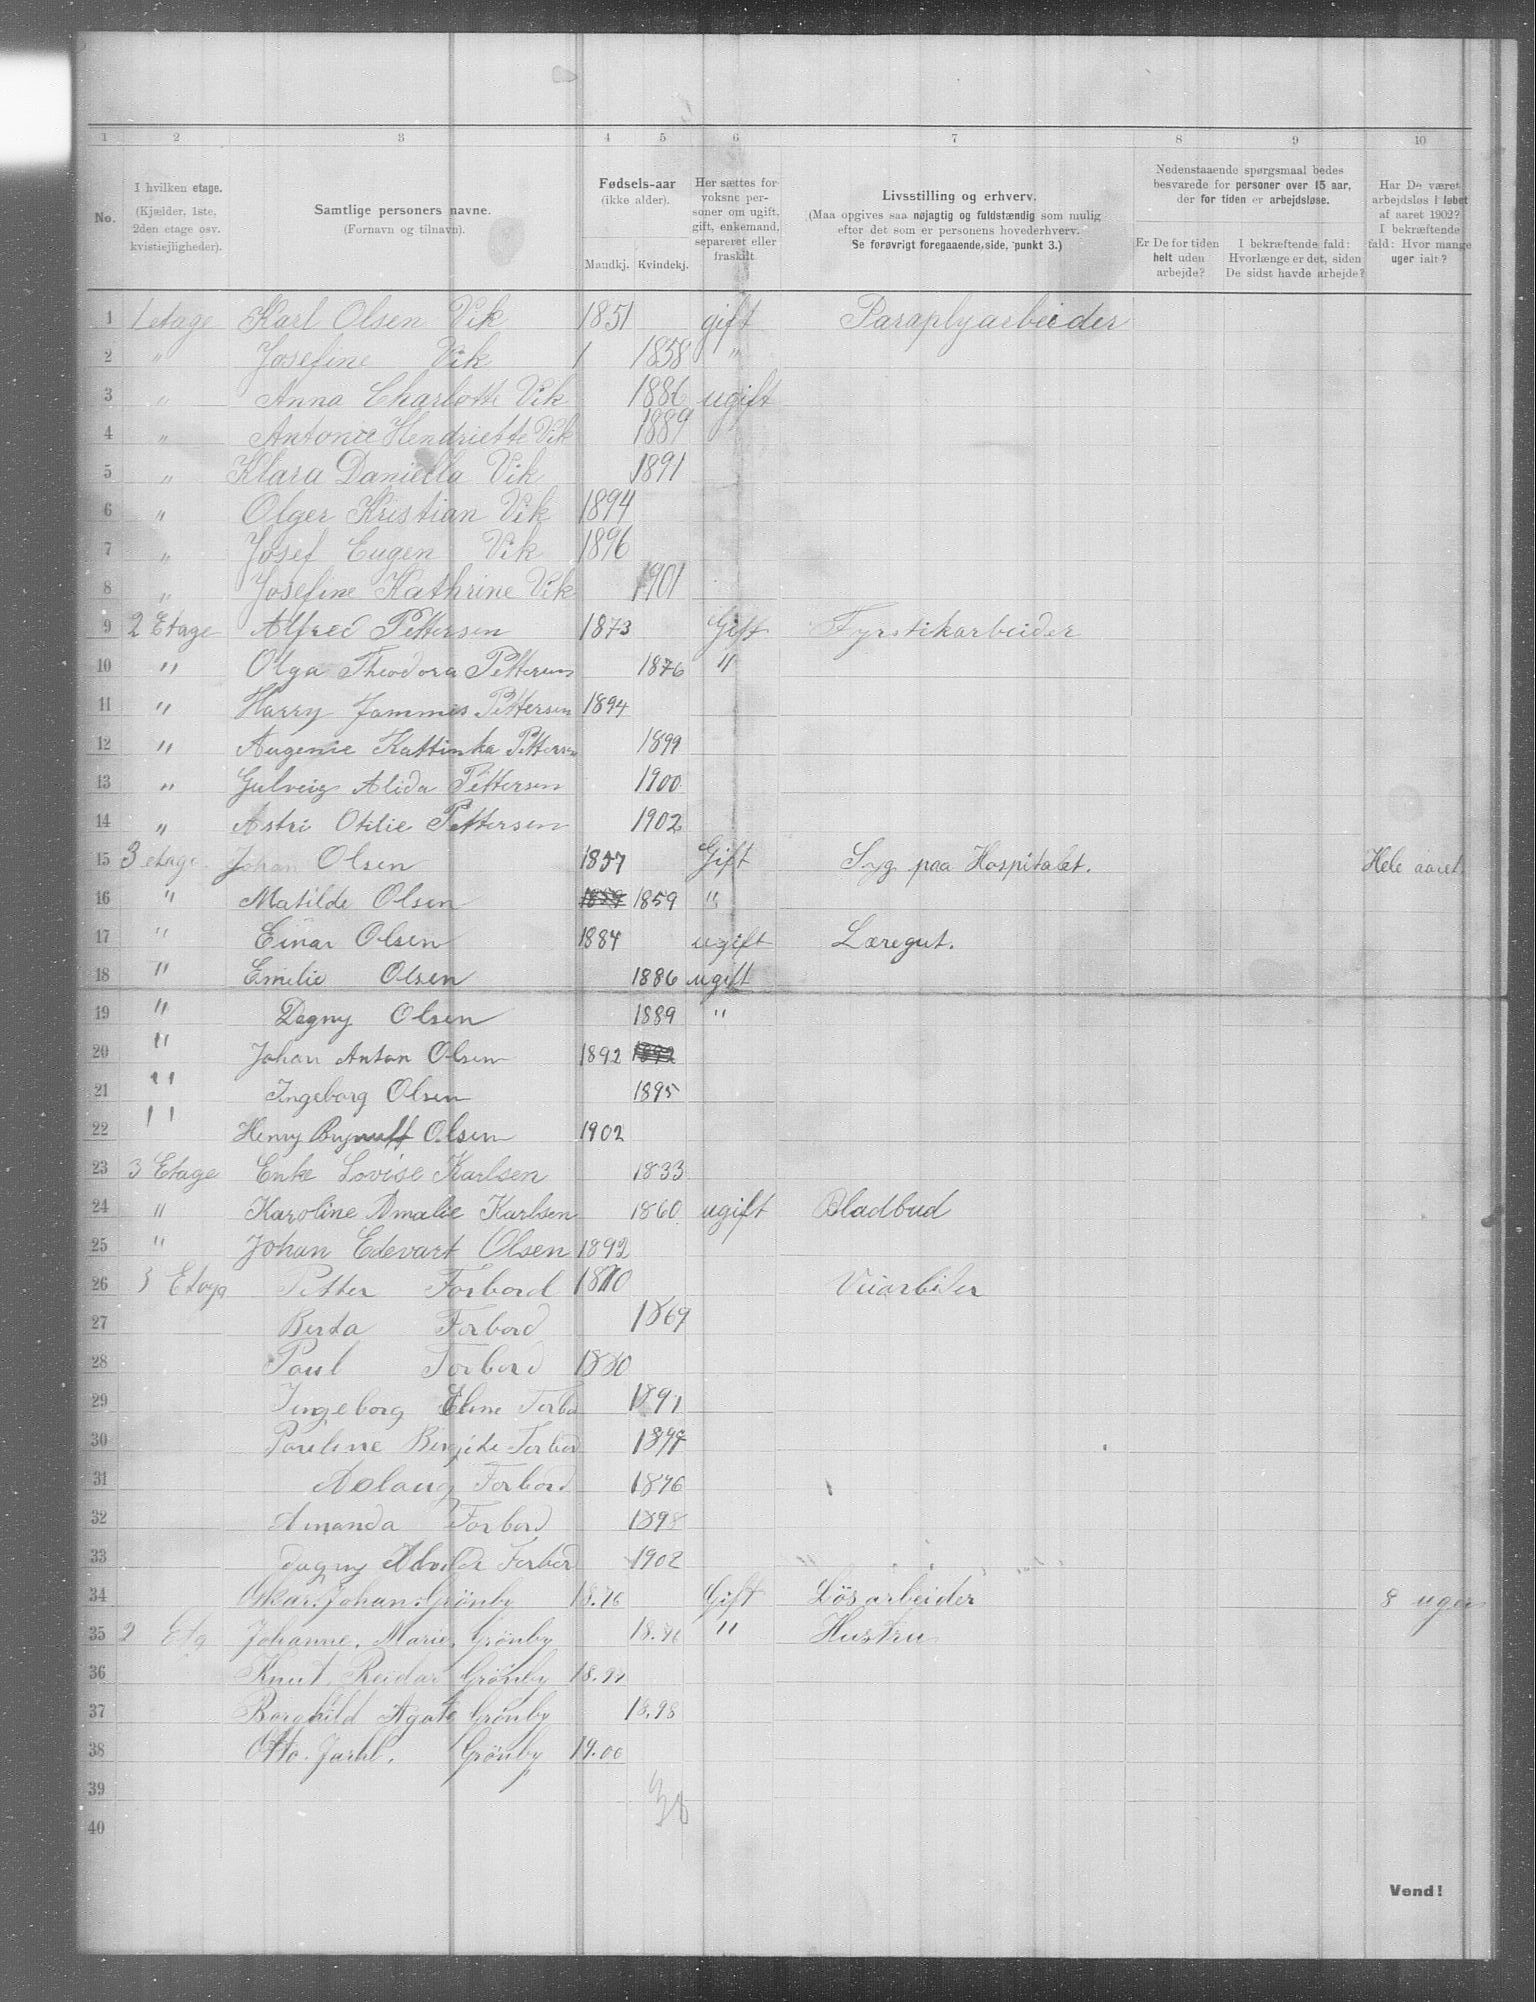 1 2 3 4 5 6 7 8 9 10
No.
I hvilken etage.
(Kjælder, 1ste,
2den etage osv.
kvistiejligheder).
Samtlige personers navne.
(Fornavn og tilnavn).
Fødsels-aar
(ikke alder).
Mandkj. Kvindekj.
Her sættes for
voksne per-
soner om ugift,
gift, enkemand,
separeret eller
fraskilt
Livsstilling og erhverv.
(Maa opgives saa nøjagtig og fuldstændig som mulig
efter det som er personens hovederhverv.
Se forøvrigt foregaaende side, punkt 3.)
Nedenstaaende spørgsmaal bedes
besvarede for personer over 15 aar,
der for tiden er arbejdsløse.
Er De for tiden
helt uden
arbejde?
I bekræftende fald:
Hvorlænge er det, siden
De sidst havde arbejde?
Har De været
arbejdsløs i løbet
af aaret 1902?
I bekræftende
fald: Hvor mange
uger ialt?
1 1 etage Karl Olsen Vik 1851 gift Paraplyarbeider
2 " Josefine Vik 1 1858 "
3 " Anna Charlotte Vik 1886 ugift
4 " Antonie Hendriette Vik 1889 "
5 " Klara Daniella Vik 1891
6 " Olger Kristian Vik 1894
7 " Josef Eugen Vik 1896
8 " Josefine Kathrine Vik 1901
9 2 Etage Alfred Pettersen 1873 Gift Fyrstikarbeider
10 " Olga Theodora Pettersen 1876 "
11 " Harry Jammes Pettersen 1894
12 " Augenie Kattinka Pettersen 1899
13 " Gulveig Alida Pettersen 1900
14 " Astri Otilie Pettersen 1902
15 3 etage Johan Olsen 1857 Gift Syg paa Hospitalet. Hele aaret.
16 " Matilde Olsen 1859 1859 "
17 " Einar Olsen 1884 ugift Læregut.
18 " Emilie Olsen 1886 ugift
19 " Dagny Olsen 1889 "
20 " Johan Anton Olsen 1892 1892
21 " Ingeborg Olsen 1895
22 " Henry Olsen 1902
23 3 Etage Enke Lovise Karlsen 1833
24 " Karoline Amalie Karlsen 1860 ugift Bladbud
25 " Johan Edevart Olsen 1892
26 3 Etage Petter Forbord 1870 Veiarbeider
27 Berta Forbord 1869
28 Paul Forbord
29 Ingeborg Eline Forbord 1891
30 Pauline Birgite Forbord
31 Aslaug Forbord 1896
32 Amanda Forbord 1898
33 Dagny Forbord 1902
34 Oskar. Johan. Grönby 18.76 Gift Lösarbeider 8 uger
35 2 Etg Johanne. Marie. Grönby 18.76 " Hustru
36 Knut. Reidar Grönby
37 Borghild Agate Grönby 18.98
38 Otto. Jarhl. Grönby 19.00
39
38
40
Vend!